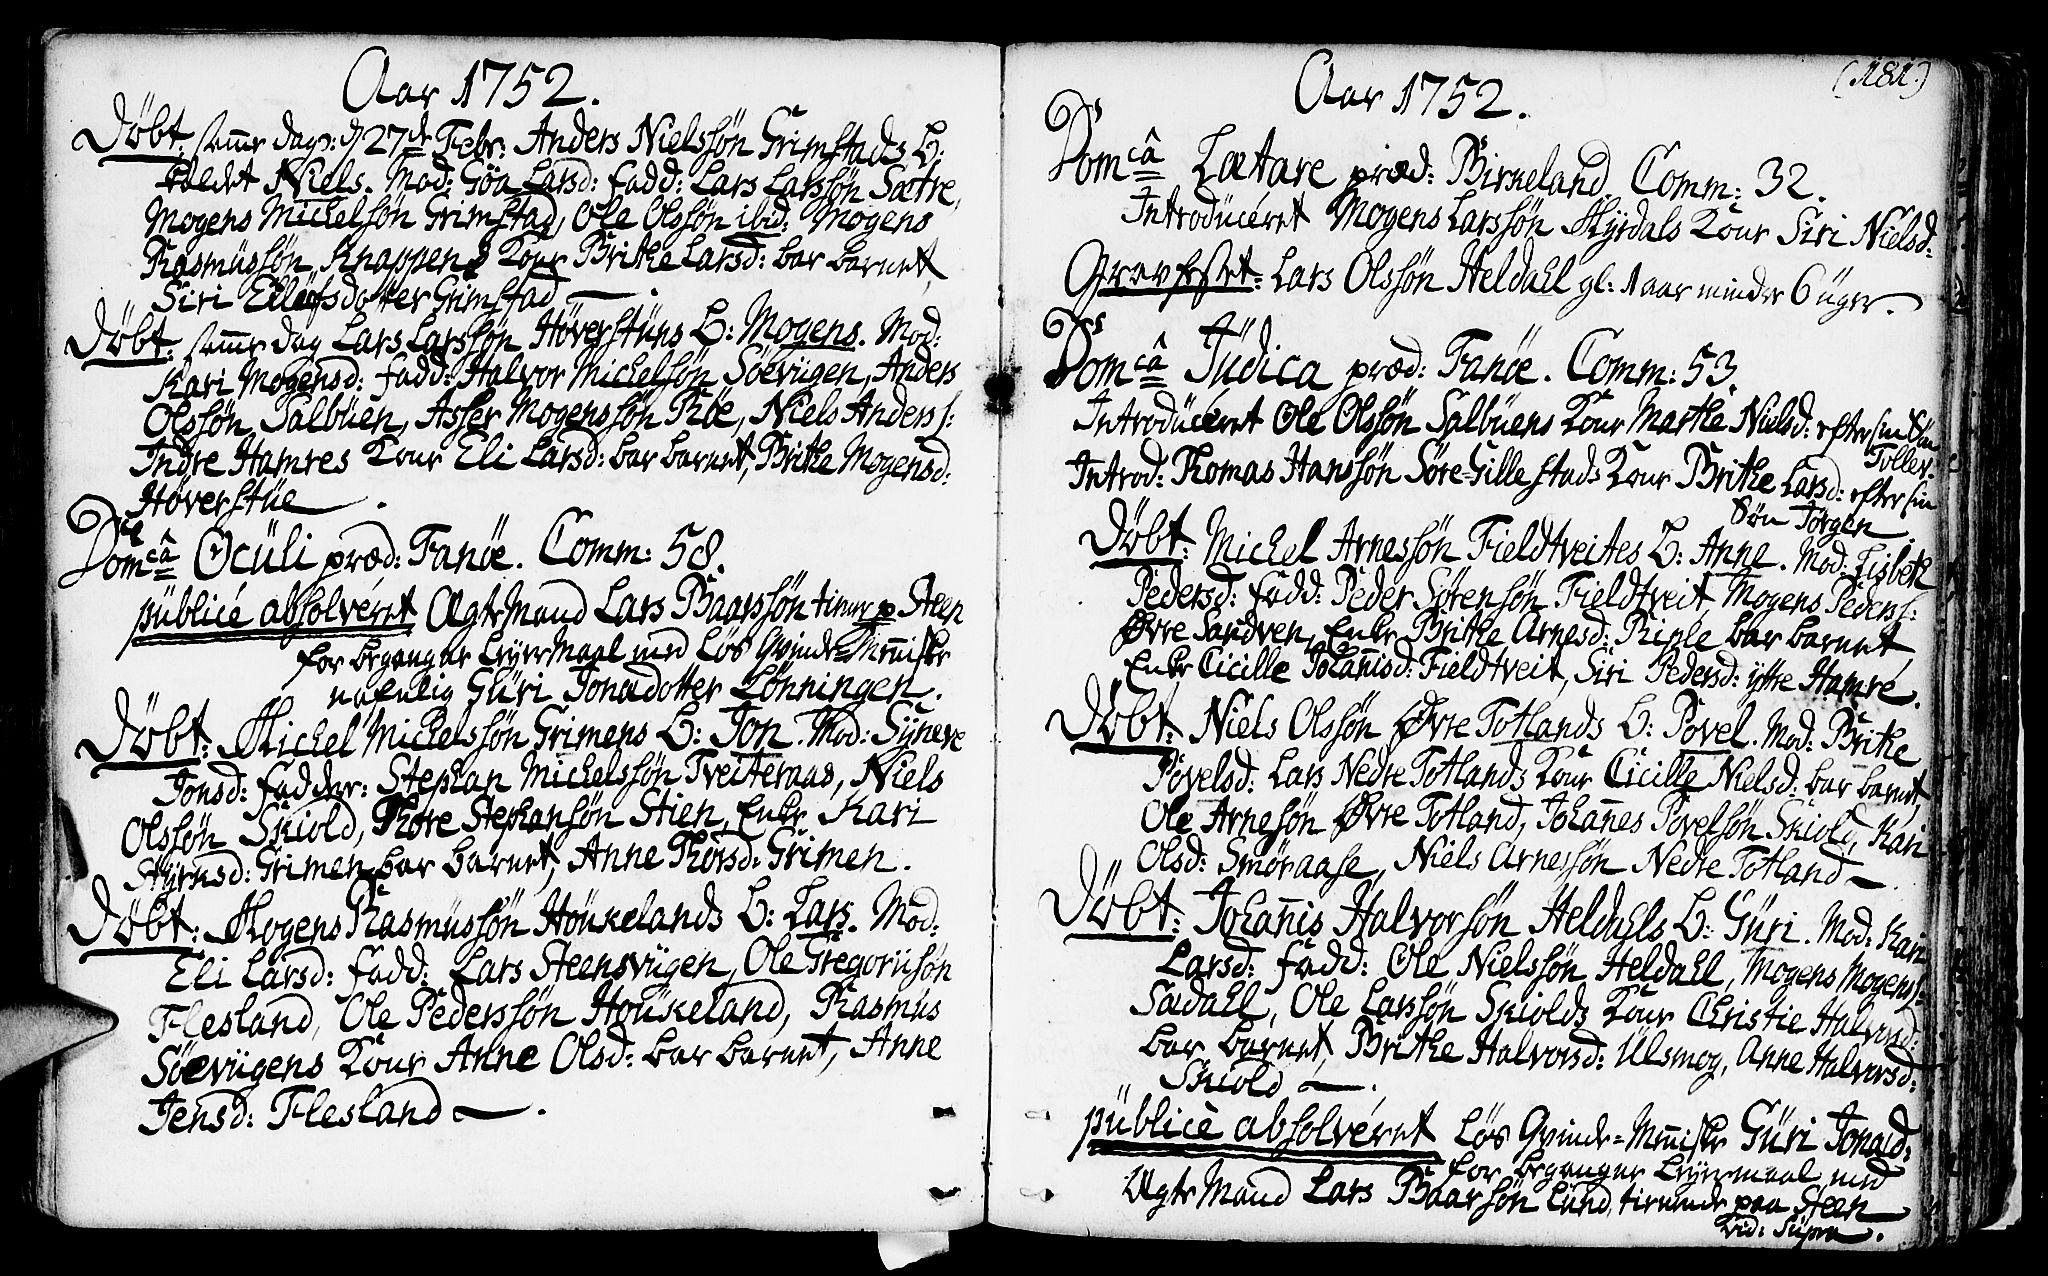 Aar 1752.
Döbt. samme dag: d 27de Febr: Anders Nielssön Grimstads b:
kaldet Niels. Mod: Göa Larsd: fadd: Lars Larssön Sætre,
Mogens Michelsön Grimstad, Ole Olssön ibid: Mogens
Rasmüssön Knappens Kone Brithe Larsd: bar barnet,
Siri Eilefsdotter Grimstad
Döbt: samme dag Lars Larssön Höverstüns b: Mogens. Mod:
Kari Mogensd: fadd: Halvor Michelsön Söevügen, Anders
Olssön Salbüen, Asser Mogenssön Röe, Niels Anderss:
Indre Hamres Kone Eli Larsd: bar barnet, Brithe Mogensd:
Höverstüe
Domcâ Ocüli præd: Fanöe. Comm: 58.
pübliçé absolvéret Ægte Mand Lars Baarssön tienne p Steen
for begangne Leyermaal med Lös Qvinde-Menniske
nafnlig Güri Jonædotter Lönningen.
Döbt: Michel Michelssön Grimens b: Jon. Mod: Synneve
Jonsd: fadder: Stephan Michelssön Tveiteraas, Niels
Olssön Skiold, Thore Stephansön Stien, Enke Kari
Styrnsd: Grimen bar barnet, Anne Thorsd: Grimen.
Döbt: Mogens Rasmüssön Höükelands b: Lars. Mod:
Eli Larsd: fadd: Lars Steensvügen, Ole Gregoriisön
Flesland, Ole Pederssön Höükeland, Rasmus
Söevügens Kone Anne Olsd: bar barnet, Anne
Jensd: Flesland
(181.)
Aar 1752.
Domcâ Lætare præd: Birkeland. Comm: 32.
Introdücéret Mogens Larssön Myrdals Kone Siri Nielsd:
Gravfæstet: Lars Olssön Heldahl gl: 1 aar minder 6 üger.
Domcâ Jüdica præd: Fanöe. Comm: 53.
Introdücéret Ole Olssön Salbüens Kone Marthe Nielsd: efter sin Sön
Tollev.
Introd: Thomas Hanssön Söre-Gillestads Kone Brithe Larsd: efter sin
Sön Jörgen
Döbt: Michel Arnessön Fieldtveites b: Anne. Mod: Lisbeth
Pedersd: fadd: Peder Sörensön Fieldtveit, Mogens Peders:
Øvre Sandven, Enke Brithe Arnesd: Riple bar barnet,
Enke Cicille Johannisd: Fieldtveit, Siri Pedersd: ytre Hamre.
Döbt: Niels Olssön Øvre Totlands b: Povel. Mod: Brithe
Povelsd: Lars Nedre Totlands Kone Cicille Nielsd: bar barnet,
Ole Arnesön Øvre Totland, Johannes Povelsön Skiold, Kari
Olsd: Smöraase, Niels Arnessön Nedre Totland
Döbt: Johannis Halvorsön Heldahls b: Güri. Mod: Kari
Larsd: fadd: Ole Nielssön Heldahl, Mogens Mogenss:
Sædahl, Ole Larssön Skiolds Kone Christie Halvorsd:
bar barnet, Brithe Halvorsd: Ülsmog, Anne Halvorsd:
Skiold
püblicè absolvéret Lös Qvinde-Menniske Güri Jonæd:
for begangne Leyermaal med
Ægte Mand Lars Baarsön Lünd, tienende paa Steen
vid: Süpra.